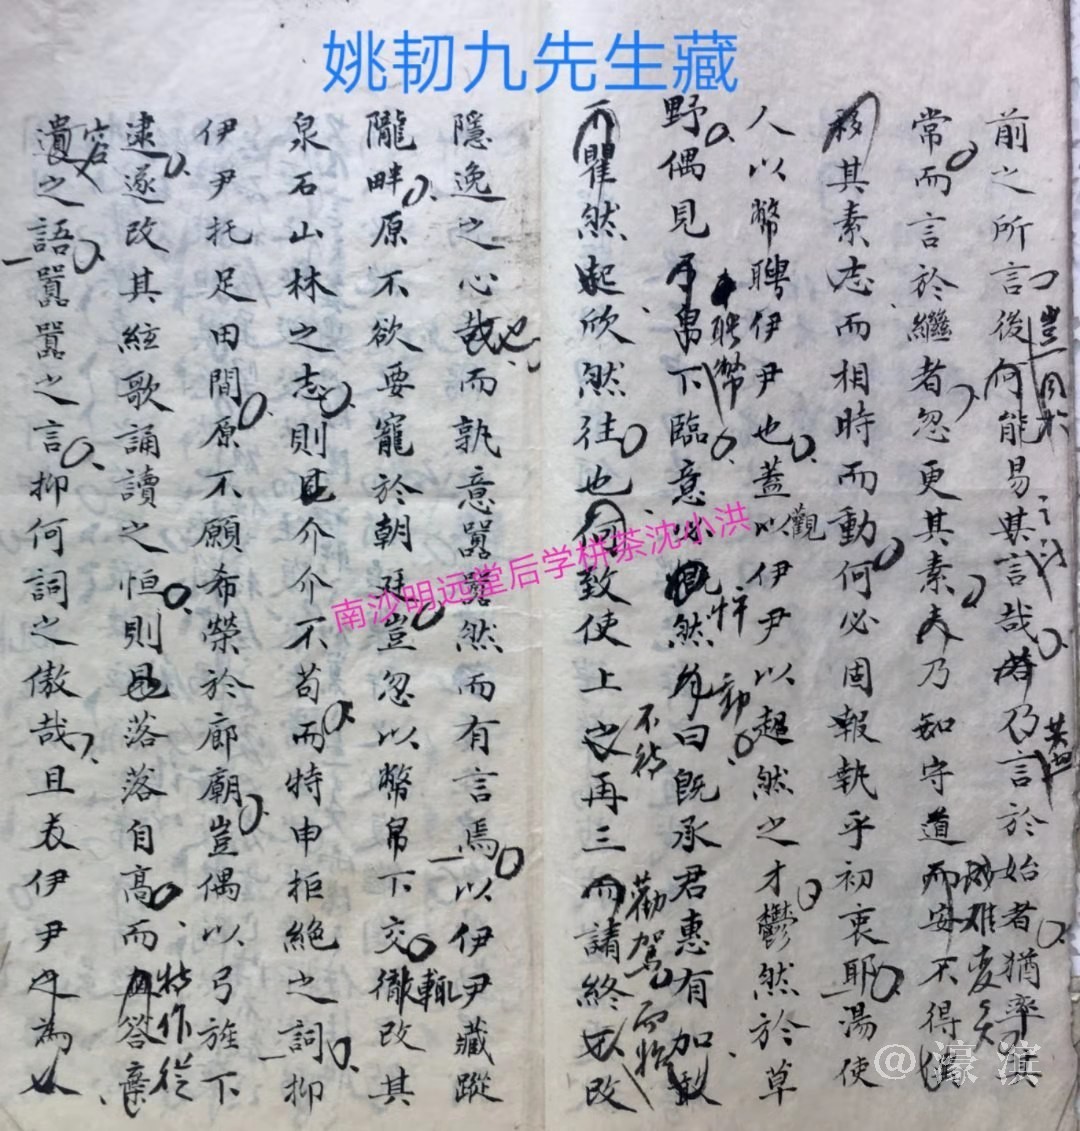 姚韧九先生藏
前之所言後何能易其言哉若乃言於始者猶率其
豈同於
其担
常而言於繼者忽更其素夫乃知守道而安不得
成难变矣
移其素志而相時而動何必固報執乎初衷耶湯使
人以幣聘伊尹也蓋以伊尹以超然之才鬱然於草
觀
野偶見帛下臨意必慨然身曰既承君惠有加敢
聘幣
不瞿然起欣然往也何致使上之再三而請終不改
不待
勸駕而
隱逸之心哉而孰意囂囂然而有言焉以伊尹藏蹤
也
隴畔原不欲要寵於朝廷豈忽以幣帛下交徹改其
輒
泉石山林之志則見介介不苟而特申拒絶之詞抑
伊尹托足田間原不願希榮於廊廟豈偶以弓旌下
逮遂改其絃歌誦讀之恒則見落落自高而答棄
特作從
遺之語囂囂之言抑何詞之傲哉且夫伊尹之為人
容
南沙明远堂后学栟茶沈小洪
@濠滨